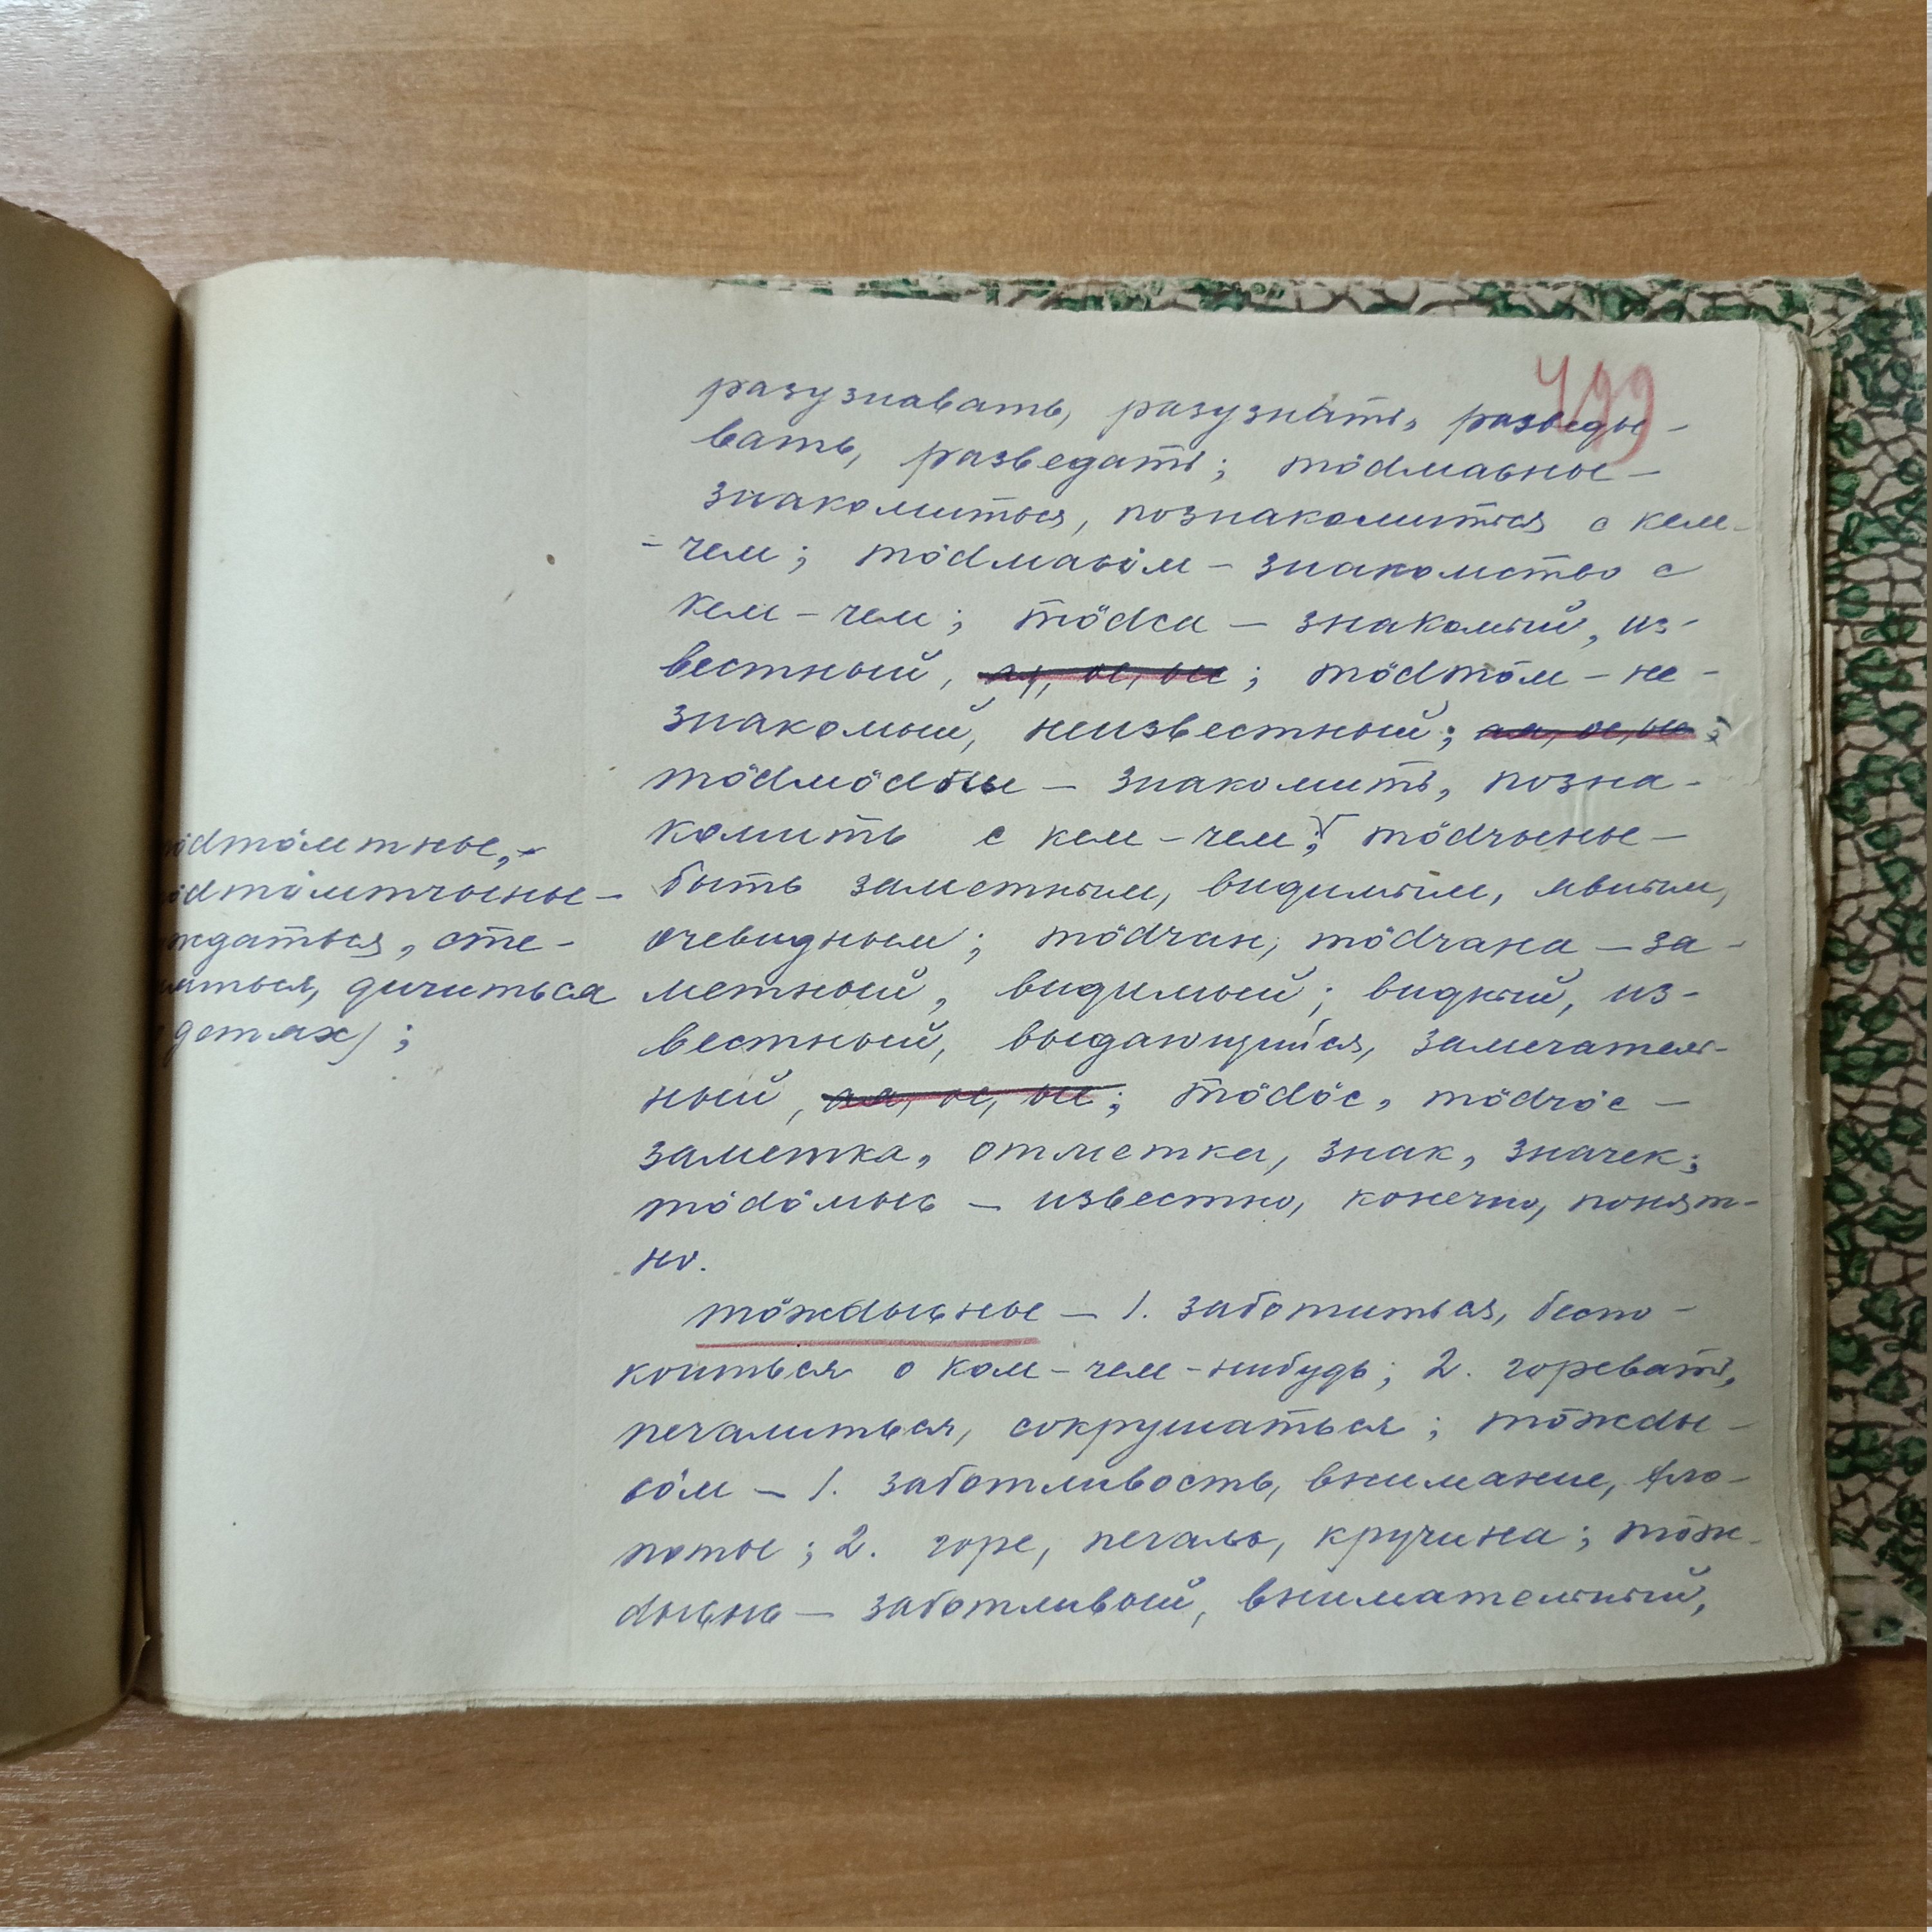 499
разузнавать, разузнать, разведы-
вать, разведать; тӧԁмаԍны –
знакомиться, познакомиться с кем-
- чем; тӧԁмаԍӧм – знакомство с
кем – чем; тӧԁса – знакомый, из-
вестный, ая, ое, ые; тӧԁтӧм – не-
знакомый, неизвестный; ая, ое, ые;
тӧԁмӧԁны – знакомить, позна-
комить с кем – чем; тӧԁчыны –
быть заметным, видимым, явным,
очевидным; тӧԁчан, тӧԁчана – за-
метный, видимый; видный, из-
вестный, выдающийся, замечатель-
ный, ая, ое, ые; тӧԁӧс, тӧԁчӧс –
заметка, отметка, знак, значек;
тӧԁӧмыԍ – известно, конечно, понят-
но.
тӧжԁыԍны – 1. заботиться, беспо-
коиться о ком – чем – нибудь; 2. горевать,
печалиться, сокрушаться; тӧжԁы-
ԍӧм – 1. заботливость, внимание, хло-
поты; 2. горе, печаль, кручина; тӧж-
ԁыԍыԍ – заботливый, внимательный,
ӧԁтӧмтны,
ӧԁтӧмтчыны –
ждаться, сте-
яться, дичиться
детях);